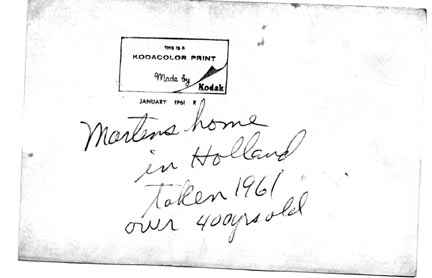 THIS IS A
KODACOLOR PRINT
Made by
Kodak
JANUARY 1961 R
Martens home
in Holland
taken 1961
over 400yrs old